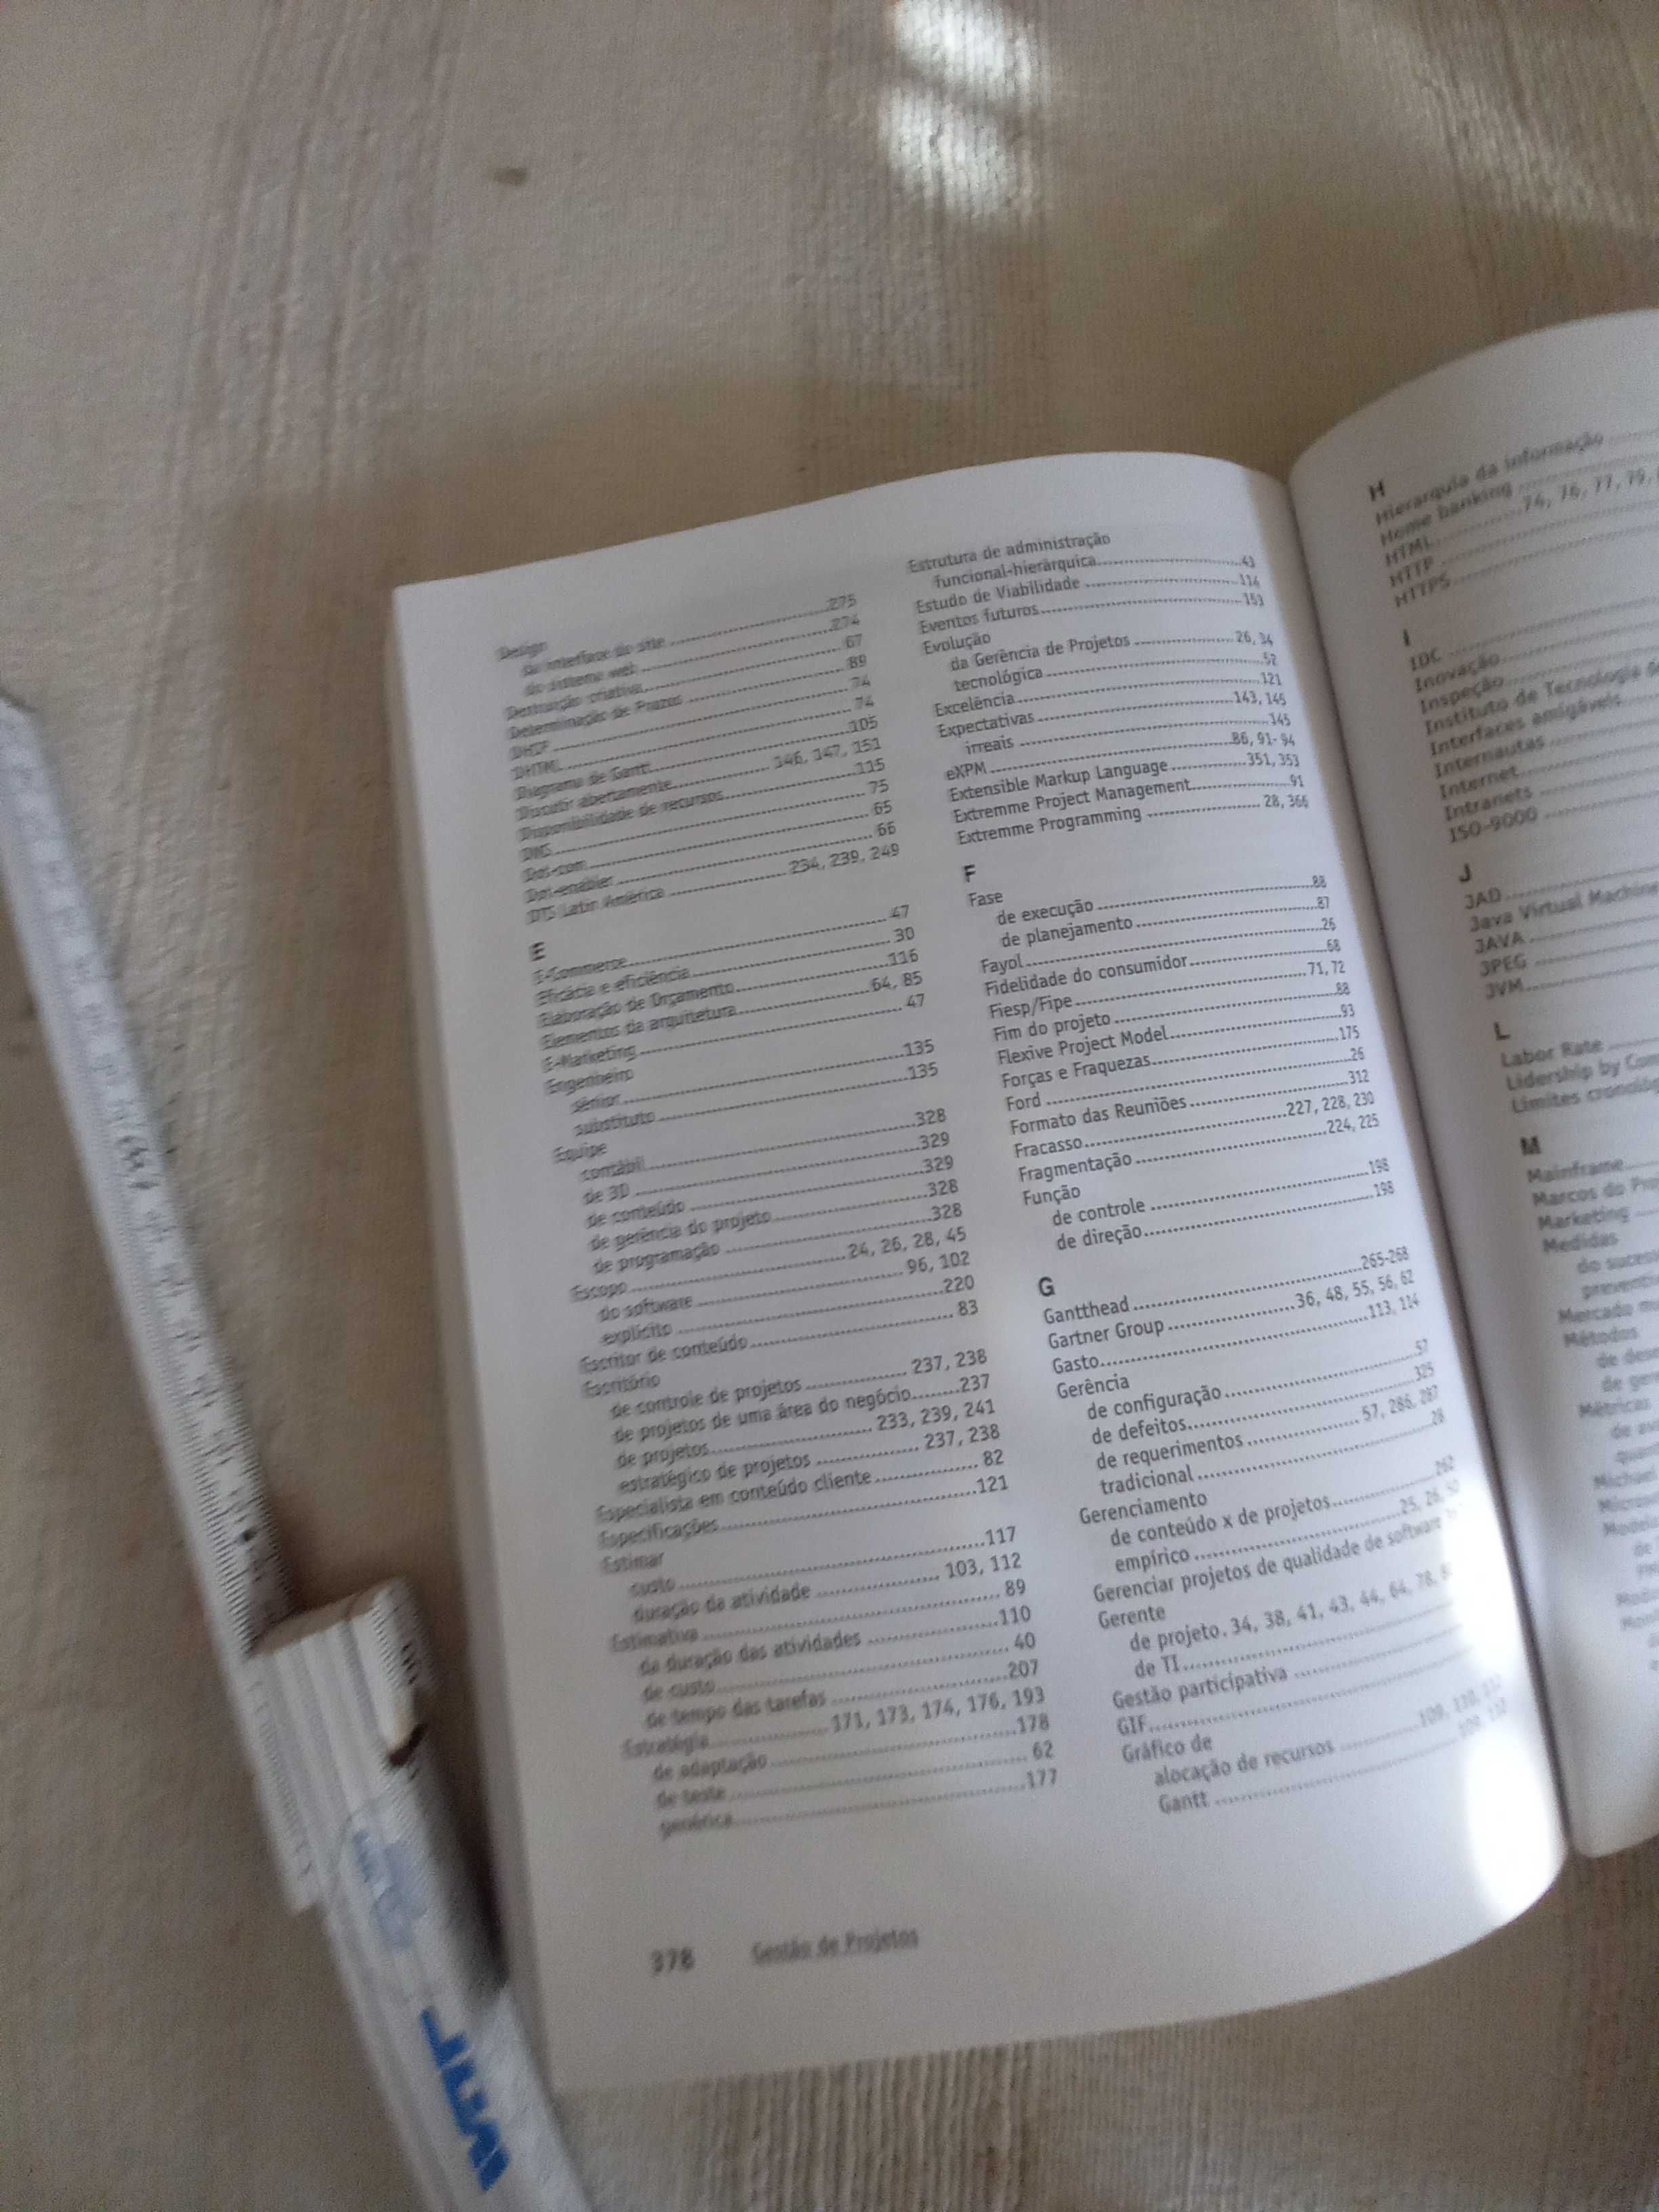 Design
da interface do site ........ 275
do sistema web ........ 274
Destruição criativa ........ 67
Determinação de Prazos ........ 89
DHCP ........ 74
DHTML ........ 74
Diagrama de Gantt ........ 105
Discutir abertamente ........ 146, 147, 151
Disponibilidade de recursos ........ 115
DNS ........ 75
Dot-com ........ 65
Dot-enabler ........ 66
DTS Latin América ........ 234, 239, 249
E
E-Commerce ........ 47
Eficácia e eficiência ........ 30
Elaboração de Orçamento ........ 116
Elementos da arquitetura ........ 64, 85
E-Marketing ........ 47
Engenheiro
sênior ........ 135
substituto ........ 135
Equipe
contábil ........ 328
de 3D ........ 329
de conteúdo ........ 329
de gerência do projeto ........ 328
de programação ........ 328
Escopo ........ 24, 26, 28, 45
do software ........ 96, 102
explícito ........ 220
Escritor de conteúdo ........ 83
Escritório
de controle de projetos ........ 237, 238
de projetos de uma área do negócio ........ 237
de projetos ........ 233, 239, 241
estratégico de projetos ........ 237, 238
Especialista em conteúdo cliente ........ 82
Especificações ........ 121
Estimar
custo ........ 117
duração da atividade ........ 103, 112
Estimativa ........ 89
da duração das atividades ........ 110
de custo ........ 40
de tempo das tarefas ........ 207
Estratégia ........ 171, 173, 174, 176, 193
de adaptação ........ 178
de teste ........ 62
genérica ........ 177
Estrutura de administração
funcional-hierárquica ........ 43
Estudo de Viabilidade ........ 114
Eventos futuros ........ 153
Evolução
da Gerência de Projetos ........ 26, 34
tecnológica ........ 52
Excelência ........ 121
Expectativas ........ 143, 145
irreais ........ 145
eXPM ........ 86, 91- 94
Extensible Markup Language ........ 351, 353
Extremme Project Management ........ 91
Extremme Programming ........ 28, 366
F
Fase
de execução ........ 88
de planejamento ........ 87
Fayol ........ 26
Fidelidade do consumidor ........ 68
Fiesp/Fipe ........ 71, 72
Fim do projeto ........ 88
Flexive Project Model ........ 93
Forças e Fraquezas ........ 175
Ford ........ 26
Formato das Reuniões ........ 312
Fracasso ........ 227, 228, 230
Fragmentação ........ 224, 225
Função
de controle ........ 198
de direção ........ 198
G
Gantthead ........ 265-268
Gartner Group ........ 36, 48, 55, 56, 62
Gasto ........ 113, 114
Gerência
de configuração ........ 57
de defeitos ........ 325
de requerimentos ........ 57, 286, 287
tradicional ........ 28
Gerenciamento
de conteúdo x de projetos ........ 262
empírico ........ 25, 26, 50
Gerenciar projetos de qualidade de software
Gerente
de projeto. 34, 38, 41, 43, 44, 64, 78,
de TI ........
Gestão participativa ........
GIF ........
Gráfico de
alocação de recursos ........ 109, 110,
Gantt ........ 109,
378 Gestão de Projetos
H
Hierarquia da informação ........
Home banking ........
HTML ........ 74, 76, 77, 79,
HTTP ........
HTTPS ........
I
IDC ........
Inovação ........
Inspeção ........
Instituto de Tecnologia
Interfaces amigáveis ........
Internautas ........
Internet ........
Intranets ........
ISO-9000 ........
J
JAD ........
Java Virtual Machine
JAVA ........
JPEG ........
JVM ........
L
Labor Rate ........
Lidership by
Limites
M
Mainframe ........
Marcos do
Marketing ........
Medidas
do
Mercado
Métodos
de
de
Métricas
de
Michael
VMT